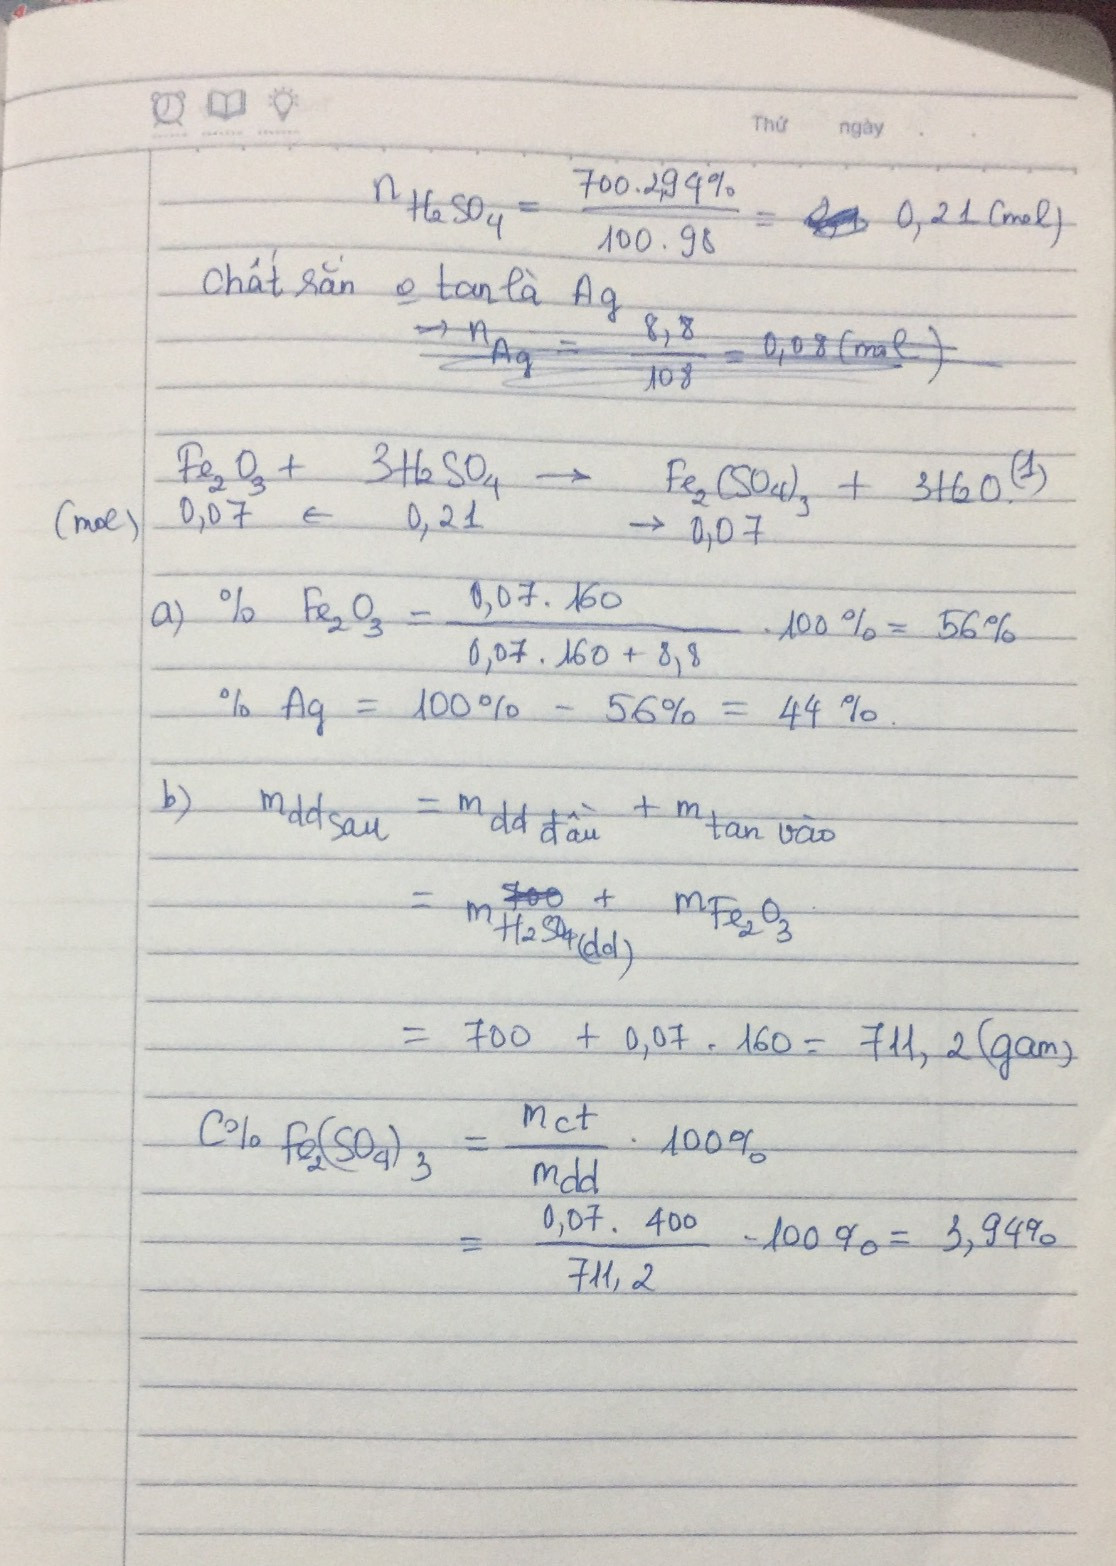 Thứ ngày
n H₂SO₄ = 700.2,94% / 100.98 = 0,21 (mol)
Chất rắn o tan là Ag
→ n Ag = 8,8 / 108 = 0,08 (mol)
Fe₂O₃ + 3H₂SO₄ → Fe₂(SO₄)₃ + 3H₂O. (1)
(mol) 0,07 ← 0,21 → 0,07
a) % Fe₂O₃ = 0,07.160 / 0,07.160 + 8,8 .100% = 56%
% Ag = 100% - 56% = 44%.
b) m dd sau = m dd đầu + m tan vào
= m H₂SO₄(dd) + m Fe₂O₃
= 700 + 0,07.160 = 711,2 (gam)
C% Fe₂(SO₄)₃ = mct / mdd . 100%
= 0,07.400 / 711,2 .100% = 3,94%